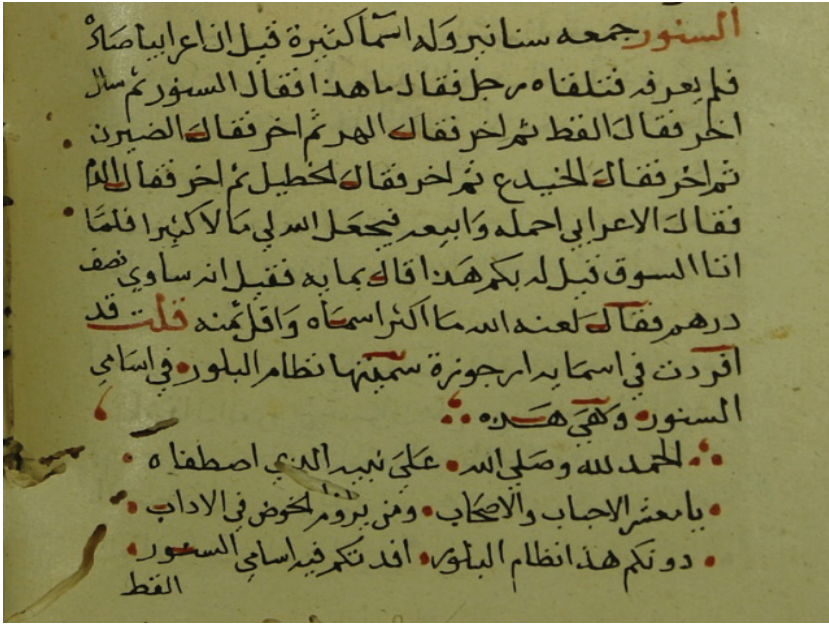 السنور جمعه سنانير وله اسما كثيرة قيل ان اعرابيا صاد
فلم يعرفه فتلقاه رجل فقال ما هذا فقال السنور ثم سال
اخر فقال القط ثم اخر فقال الهر ثم اخر فقال الضيرن
ثم اخر فقال الخيدع ثم اخر فقال الخطيل ثم اخر فقال الدم
فقال الاعرابي احمله وابيعه فيجعل الله لي مالا كثيرا فلما
اتا السوق قيل له بكم هذا قال بمايه فقيل انه ساوي نصف
درهم فقال لعنه الله ما اكثر اسماه واقل ثمنه قلت قد
افردت في اسمايه ارجوزة سميتها نظام البلور في اسامي
السنور وهي هذه
الحمد لله وصلي الله على نبيه الذي اصطفاه
يا معشر الاحباب والاصحاب ومن يروم الخوض في الاداب
دونكم هذا نظام البلور افدتكم فيه اسامي السنور
القط